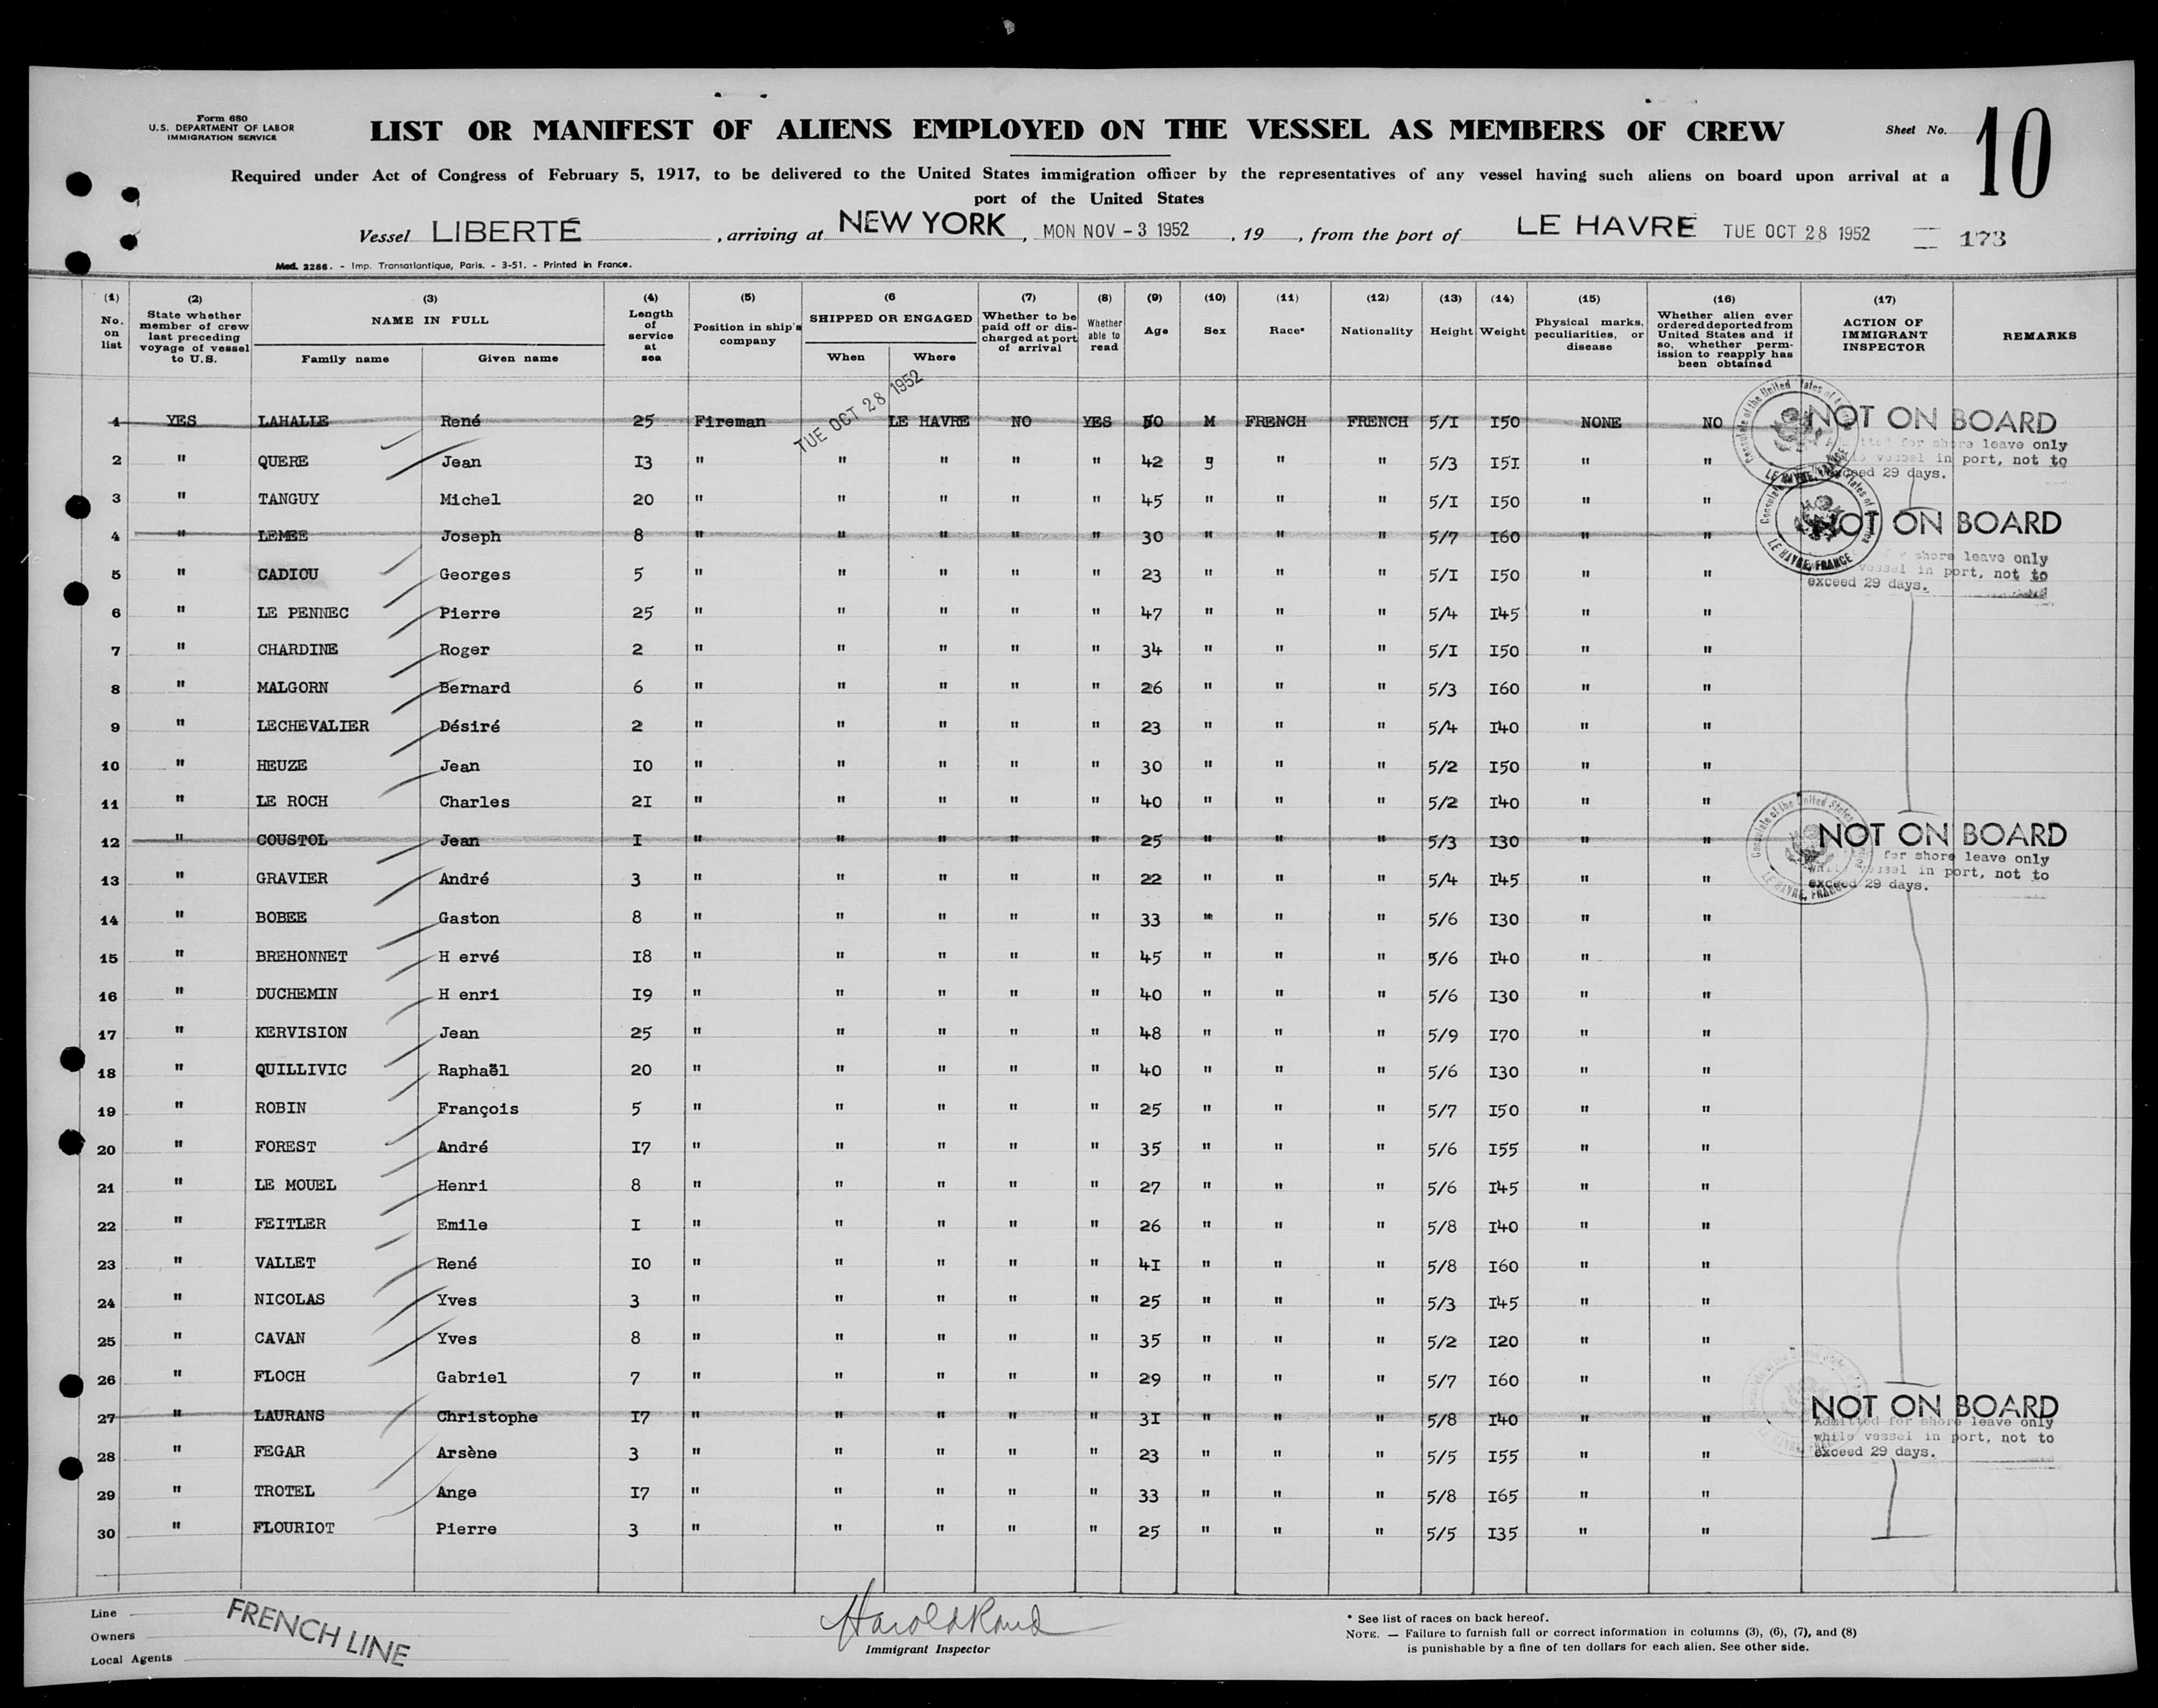 Form 680
U.S. DEPARTMENT OF LABOR
IMMIGRATION SERVICE
LIST OR MANIFEST OF ALIENS EMPLOYED ON THE VESSEL AS MEMBERS OF CREW
Sheet No. 10
Required under Act of Congress of February 5, 1917, to be delivered to the United States immigration officer by the representatives of any vessel having such aliens on board upon arrival at a
port of the United States
Vessel LIBERTÉ , arriving at NEW YORK , MON NOV - 3 1952 , 19 , from the port of LE HAVRE TUE OCT 28 1952 173
Mod. 2286. - Imp. Transatlantique, Paris. - 3-51. - Printed in France.
(1) No. on list (2) State whether member of crew last preceding voyage of vessel to U.S. (3) NAME IN FULL Family name Given name (4) Length of service at sea (5) Position in ship's company (6 SHIPPED OR ENGAGED When Where (7) Whether to be paid off or discharged at port of arrival (8) Whether able to read (9) Age (10) Sex (11) Race* (12) Nationality (13) Height (14) Weight (15) Physical marks, peculiarities, or disease (16) Whether alien ever ordered deported from United States and if so, whether permission to reapply has been obtained (17) ACTION OF IMMIGRANT INSPECTOR REMARKS
TUE OCT 28 1952
1 YES LAHALLE René 25 Fireman LE HAVRE NO YES 50 M FRENCH FRENCH 5/I I50 NONE NO NOT ON BOARD
for shore leave only
vessel in port, not to
exceed 29 days.
2 " QUERE Jean I3 " " " " " 42 " " 5/3 I5I " "
3 " TANGUY Michel 20 " " " " " 45 " " " 5/I I50 " "
4 " LEMEE Joseph 8 " " " " " 30 " " " 5/7 I60 " " NOT ON BOARD
shore leave only
vessel in port, not to
exceed 29 days.
5 " CADIOU Georges 5 " " " " " 23 " " " 5/I I50 " "
6 " LE PENNEC Pierre 25 " " " " " 47 " " " 5/4 I45 " "
7 " CHARDINE Roger 2 " " " " " 34 " " " 5/I I50 " "
8 " MALGORN Bernard 6 " " " " " 26 " " " 5/3 I60 " "
9 " LECHEVALIER Désiré 2 " " " " " 23 " " " 5/4 I40 " "
10 " HEUZE Jean IO " " " " " 30 " " " 5/2 I50 " "
11 " LE ROCH Charles 2I " " " " " 40 " " " 5/2 I40 " "
12 " COUSTOL Jean I " " " " " 25 " " " 5/3 I30 " " NOT ON BOARD
for shore leave only
vessel in port, not to
exceed 29 days.
13 " GRAVIER André 3 " " " " " 22 " " " 5/4 I45 " "
14 " BOBEE Gaston 8 " " " " " 33 " " " 5/6 I30 " "
15 " BREHONNET H ervé I8 " " " " " 45 " " " 5/6 I40 " "
16 " DUCHEMIN H enri I9 " " " " " 40 " " " 5/6 I30 " "
17 " KERVISION Jean 25 " " " " " 48 " " " 5/9 I70 " "
18 " QUILLIVIC Raphaël 20 " " " " " 40 " " " 5/6 I30 " "
19 " ROBIN François 5 " " " " " 25 " " " 5/7 I50 " "
20 " FOREST André I7 " " " " " 35 " " " 5/6 I55 " "
21 " LE MOUEL Henri 8 " " " " " 27 " " " 5/6 I45 " "
22 " FEITLER Emile I " " " " " 26 " " " 5/8 I40 " "
23 " VALLET René IO " " " " " 4I " " " 5/8 I60 " "
24 " NICOLAS Yves 3 " " " " " 25 " " " 5/3 I45 " "
25 " CAVAN Yves 8 " " " " " 35 " " " 5/2 I20 " "
26 " FLOCH Gabriel 7 " " " " " 29 " " " 5/7 I60 " "
27 " LAURANS Christophe I7 " " " " " 3I " " " 5/8 I40 " " NOT ON BOARD
Admitted for shore leave only
while vessel in port, not to
exceed 29 days.
28 " FEGAR Arsène 3 " " " " " 23 " " " 5/5 I55 " "
29 " TROTEL Ange I7 " " " " " 33 " " " 5/8 I65 " "
30 " FLOURIOT Pierre 3 " " " " " 25 " " " 5/5 I35 " "
Consulate of the United States of America
LE HAVRE, FRANCE
Line FRENCH LINE
Owners
Local Agents
Harold Rand
Immigrant Inspector
* See list of races on back hereof.
NOTE. — Failure to furnish full or correct information in columns (3), (6), (7), and (8)
is punishable by a fine of ten dollars for each alien. See other side.